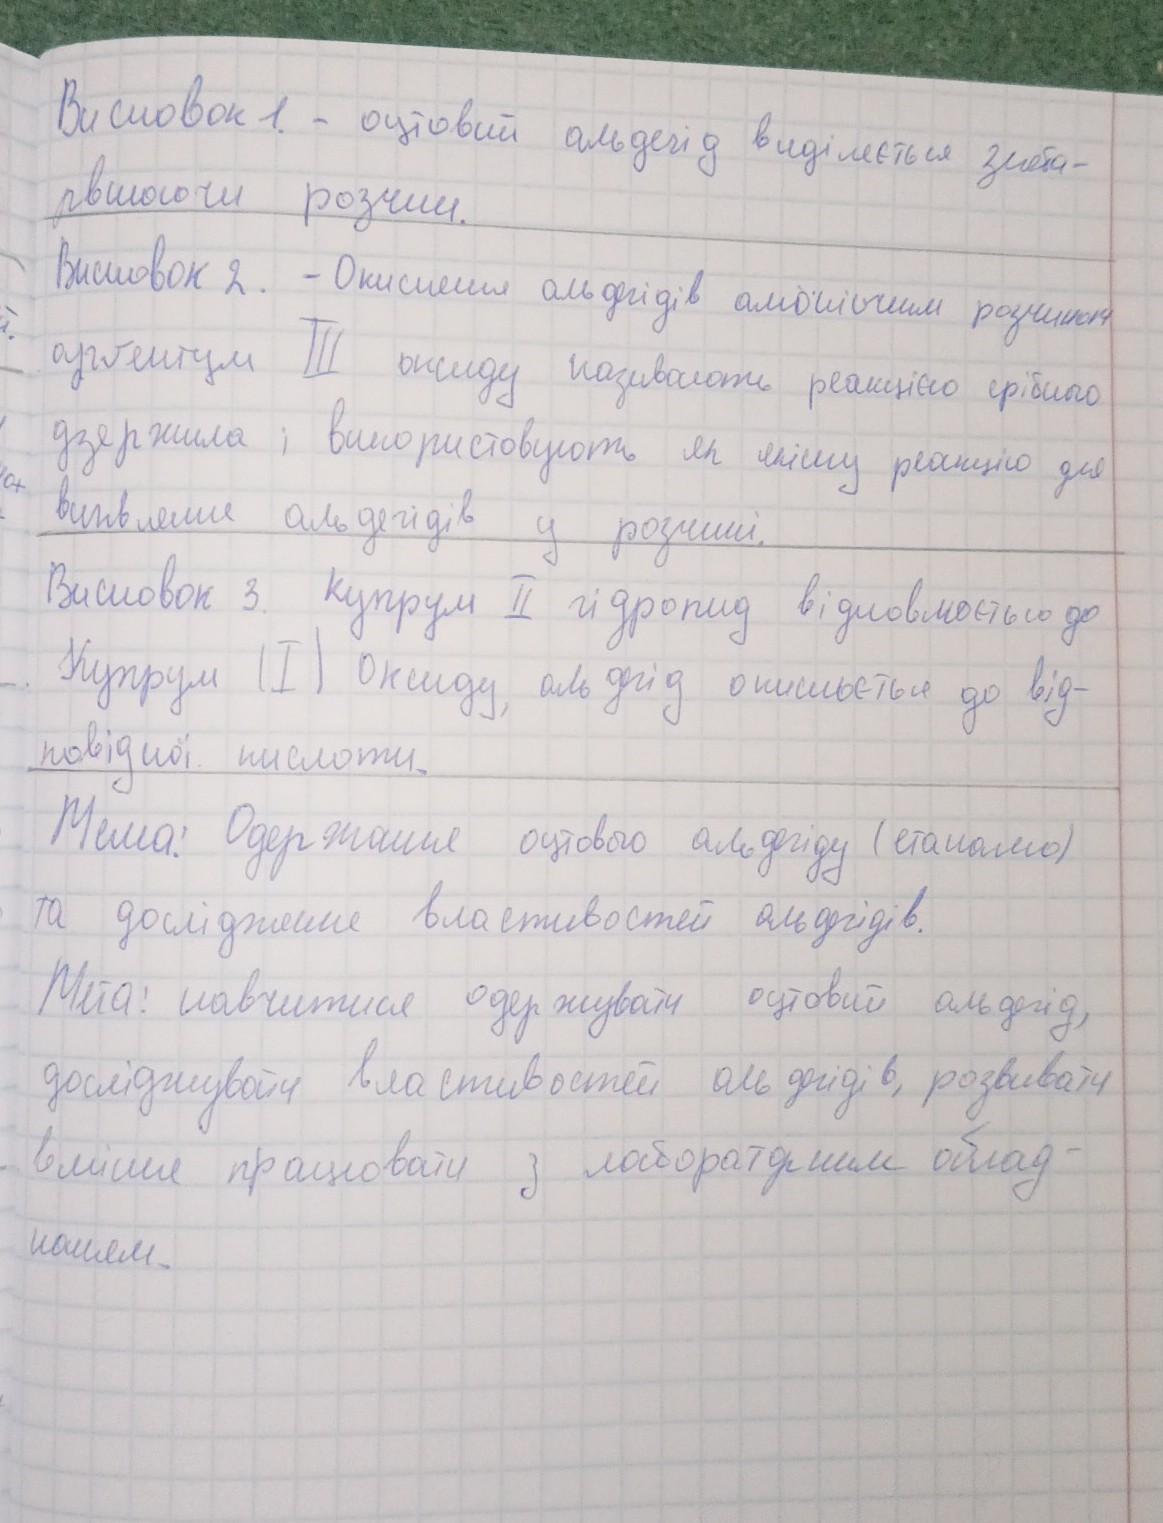 Висновок 1. - оцтовий альдегід виділяється знеба-
рвлюючи розчин.
Висновок 2. - Окиснення альдегідів амоніачним розчином
аргентум III оксиду називають реакцією срібного
дзеркала і використовують як якісну реакцію для
виявлення альдегідів у розчині.
Висновок 3. Купрум II гідроксид відновлюється до
Купрум (I) Оксиду, альдегід окиснюється до від-
повідної кислоти.
Тема: Одержання оцтового альдегіду (етаналю)
та дослідження властивостей альдегідів.
Мета: навчитися одержувати оцтовий альдегід,
досліджувати властивостей альдегідів, розвивати
вміння працювати з лабораторним облад-
нанням.